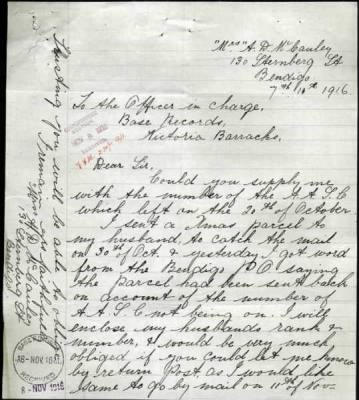 "Mrs" A. D. McCauley
130 Sternberg St
Bendigo
7th 11th 1916.
To the Officer in Charge,
Base Records,
Victoria Barracks,
Dear Sir,
Could you supply me
with the number of the A A S C
which left on the 20th of October
I sent a Xmas parcel to
my husband to catch the mail
on 30th Oct. & yesterday I got word
from the Bendigo P.O saying
the parcel had been sent back
on account of the number of
A A S C not being on. I will
enclose my husbands rank &
number, & would be very much
obliged if you could let me know
by return Post as I would like
same to go by mail on 11th of Nov-
Trusting you will be able to oblige
I remain
yours faithfully
Mrs A D McCauley
130 Sternberg St
Bendigo.
BASE RECORDS
8-NOV.1916
RECEIVED
8-NOV 1916